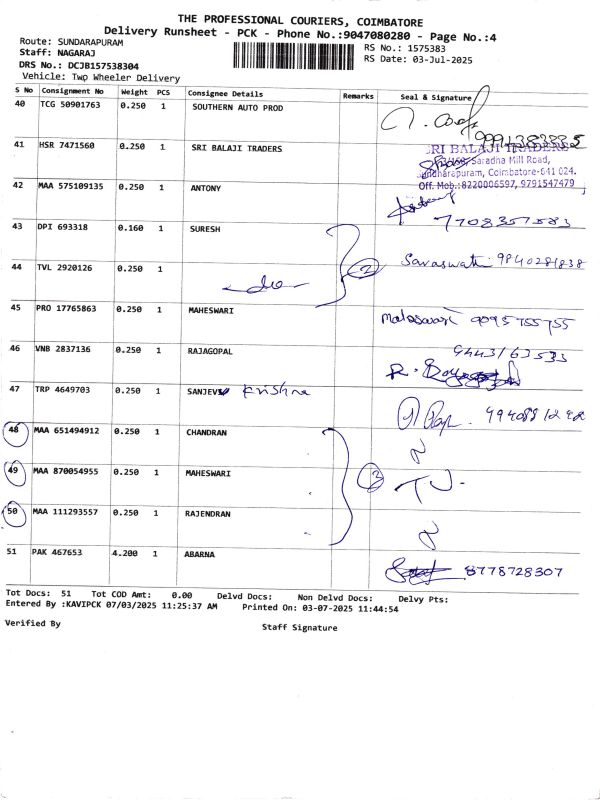 THE PROFESSIONAL COURIERS, COIMBATORE
Delivery Runsheet - PCK - Phone No.:9047080280 - Page No.:4
Route: SUNDARAPURAM
RS No.: 1575383
Staff: NAGARAJ
RS Date: 03-Jul-2025
DRS No.: DCJB157538304
Vehicle: Two Wheeler Delivery
S No Consignment No Weight PCS Consignee Details Remarks Seal & Signature
40 TCG 50901763 0.250 1 SOUTHERN AUTO PROD
41 HSR 7471560 0.250 1 SRI BALAJI TRADERS
SRI BALAJI TRADERS
Saradha Mill Road,
Sundharapuram, Coimbatore-641 024.
Off. Mob.:8220006597, 9791547479
42 MAA 575109135 0.250 1 ANTONY
7708357583
43 DPI 693318 0.160 1 SURESH
Saraswati 9840281838
44 TVL 2920126 0.250 1
-do- 2
45 PRO 17765863 0.250 1 MAHESWARI
9095755755
46 VNB 2837136 0.250 1 RAJAGOPAL
9443163533
47 TRP 4649703 0.250 1 SANJEV Krishna
48 MAA 651494912 0.250 1 CHANDRAN
49 MAA 870054955 0.250 1 MAHESWARI 3
50 MAA 111293557 0.250 1 RAJENDRAN
51 PAK 467653 4.200 1 ABARNA
8778728307
Tot Docs: 51 Tot COD Amt: 0.00 Delvd Docs: Non Delvd Docs: Delvy Pts:
Entered By :KAVIPCK 07/03/2025 11:25:37 AM Printed On: 03-07-2025 11:44:54
Verified By
Staff Signature